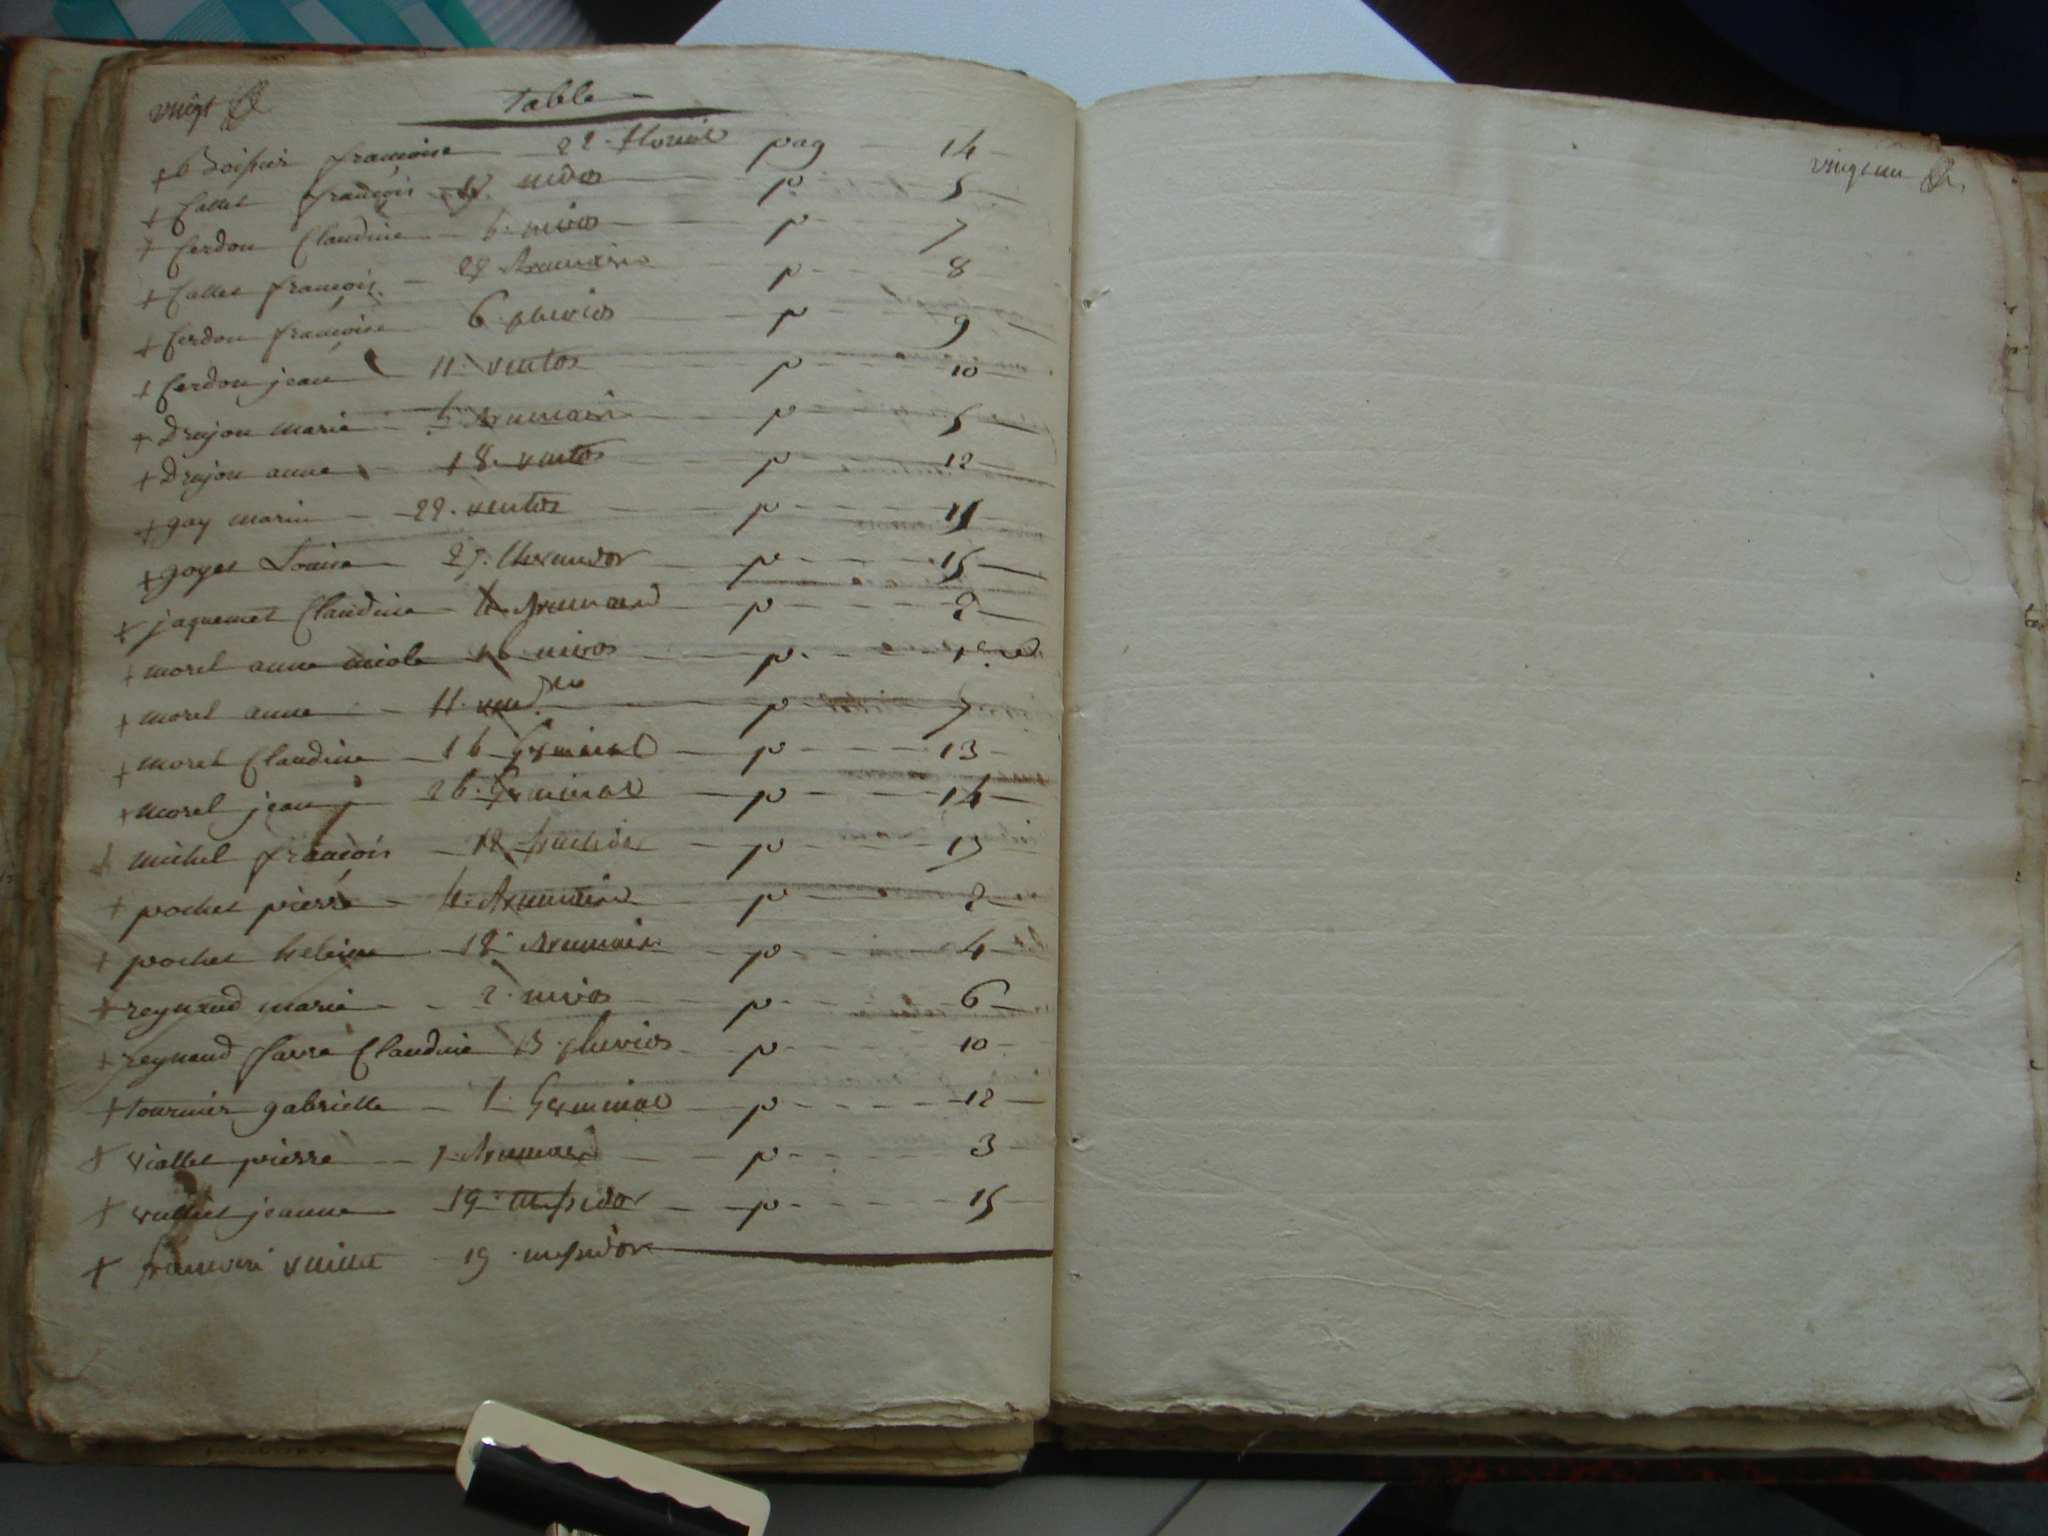 vingt
Table
+ Boissier françoise 22. floreal pag 14
+ Callet françois nivos p 5
+ Cerdon Claudine 6. nivos p 7
+ Callet françois 29 brumaire p 8
+ Cerdon françoise 6. pluvios p 9
+ Cerdon jean 11. ventos p 10
+ Drujon marie brumaire p 5
+ Drujon anne 18. ventos p 12
+ gay marie 22. ventos p 11
+ goyet Louise 25. thermidor p 15
+ jaquemet Claudine brumaire p 2
+ morel anne nicole 16. nivos p.
+ morel anne 11. p 7
+ morel Claudine 16 Germinal p 13
+ morel jean 26. Germinal p 14
+ michel françois 12 p 13
+ pochet pierre 4. brumaire p 2
+ pochet heleine 18 brumaire p 4
+ reynaud marie 2. nivos p 6
+ reynaud favre Claudine 13. pluvios p 10
+ tournier gabrielle 1. Germinal p 12
+ viallet pierre 7. brumaire p 3
+ vuillet jeanne 19. messidor p 15
+ vuillet 19. messidor
vingt un